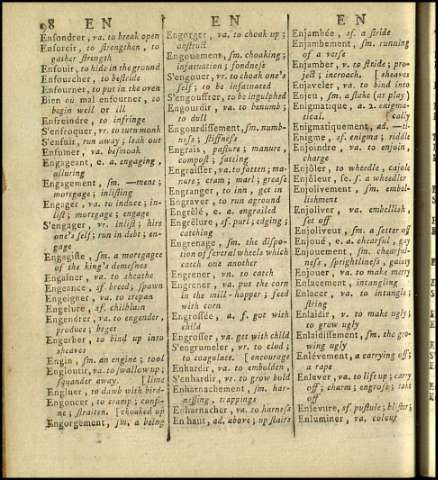 98 EN
EN
EN
Enfondrer, va. to break open
Enforcir, to strengthen, to
gather strength
Enfouir, to hide in the ground
Enfourcher, to bestride
Enfourner, to put in the oven
Bien ou mal enfourner, to
begin well or ill
Enfreindre, to infringe
S'enfroquer, vr. to turn monk
S'enfuir, run away; leak out
Enfumer, va. besmoak
Engageant, e. a. engaging,
alluring
Engagement, sm. —ment;
mortgage; inlisting
Engager, va. to induce; in-
list; mortgage; engage
S'engager, vr. inlist; hire
one's self; run in debt; en-
gage
Engagiste, sm. a mortgagee
of the king's demesnes
Engaîner, va. to sheathe
Engeance, sf. breed, spawn
Engeigner, va. to trepan
Engelure, sf. chilblain
Engendrer, va. to engender,
produce; beget
Engerber, to bind up into
sheaves
Engin, sm. an engine; tool
Engloutir, va. to swallow up;
squander away. [lime
Engluer, to dawb with bird-
Engoncer, to cramp; confi-
ne; straiten. [choaked up
Engorgement, sm. a being
Engorger, va. to choak up;
obstruct
Engouement, sm. choaking;
infatuation; fondness
S'engouer, vr. to choak one's
self; to be infatuated
S'engouffrer, to be ingulphed
Engourdir, va. to benumb;
to dull
Engourdissement, sm. numb-
ness; stiffness
Engrais, pasture; manure,
compost; fatting
Engraisser, va. to fatten; ma-
nure; cram; marl; grease
Engranger, to inn, get in
Engraver, to run aground
Engrêlé, e. a. engrailed
Engrêlure, sf. purl; edging;
catching
Engrenage, sm. the dispo-
tion of several wheels which
catch in one another
Engrener, vn. to catch
Engrener, va. put the corn
in the mill-hopper; feed
with corn
Engrossée, a. f. got with
child
Engrosser, va. get with child
S'engrumeler, vr. to clud;
to coagulate. [encourage
Enhardir, va. to embolden,
S'enhardir, vr. to grow bold
Enharnachement, sm. har-
nessing, trappings
Enharnacher, va. to harness
En haut, ad. above; up stairs
Enjambée, sf. a stride
Enjambement, sm. running
of a verse
Enjamber, v. to stride; pro-
ject; incroach. [sheaves
Enjaveler, va. to bind into
Enjeu, sm. a stake (at play)
Enigmatique, a. 2. enigma-
tical. cally
Enigmatiquement, ad. —ti-
Enigme, sf. enigma; riddle
Enjoindre, va. to enjoin,
charge
Enjôler, to wheedle, cajole
Enjôleur, se, sf. a wheedler
Enjolivement, sm. embel-
lishment
Enjoliver, va. embellish,
set off
Enjoliveur, sm. a setter off
Enjoué, e. a. chearful, gay
Enjouement, sm. chearful-
ness, sprightliness, gaiety
Enjouer, va. to make merry
Enlacement, intangling
Enlacer, va. to intangle;
string
Enlaidir, v. to make ugly;
to grow ugly
Enlaidissement, sm. the gro-
wing ugly
Enlévement, a carrying off;
a rape
Enlever, va. to lift up; carry
off; charm; engross; take
off
Enlevure, sf. pustule; blister;
Enluminer, va. colour